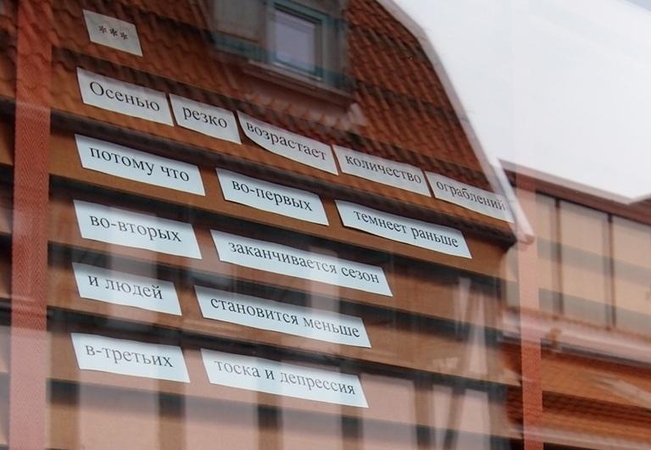 ***
Осенью резко возрастает количество ограблений
потому что во-первых темнеет раньше
во-вторых заканчивается сезон
и людей становится меньше
в-третьих тоска и депрессия